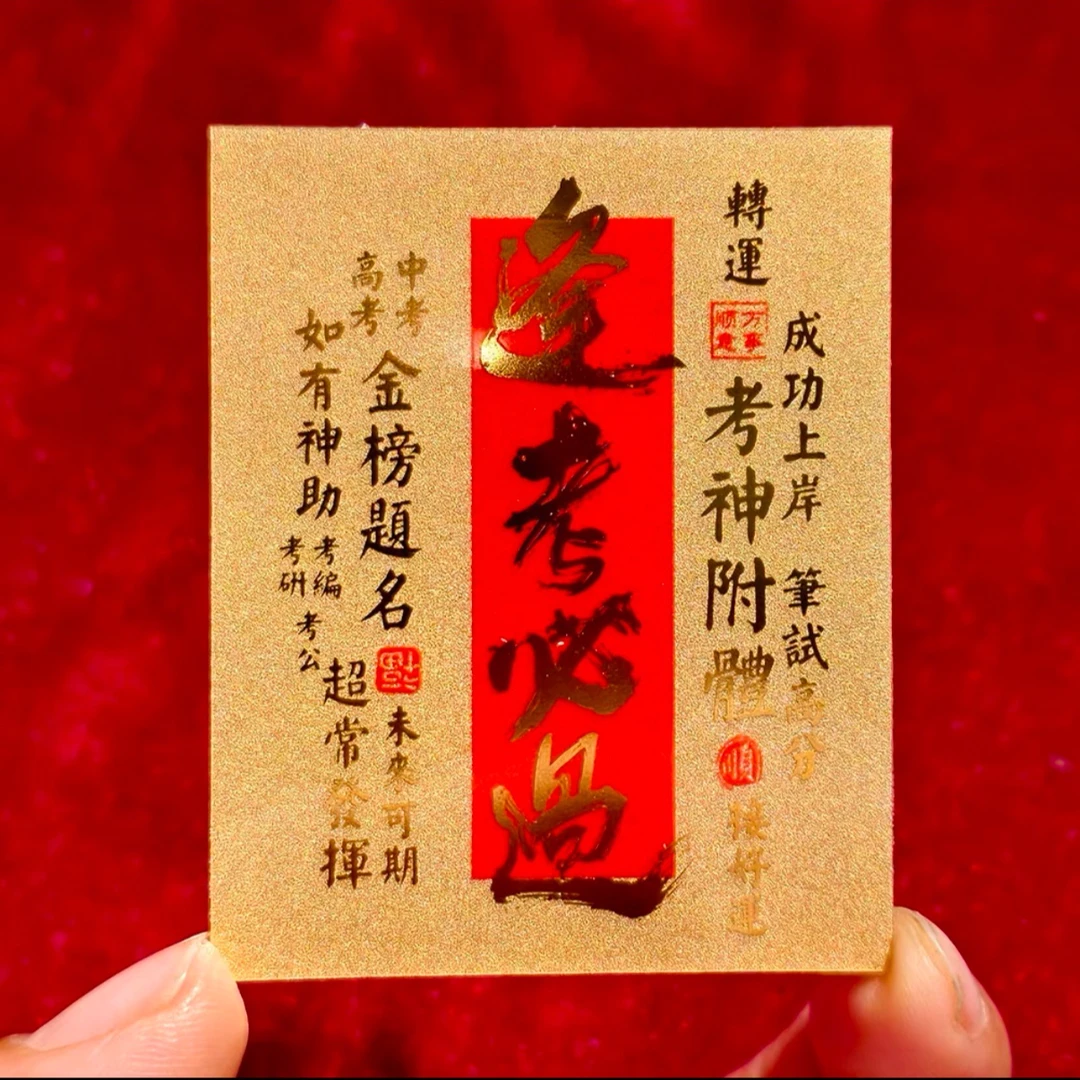 成功上岸 筆試高分
轉運
万事
順意
考神附體
順
接好運
逢考必過
中考
高考
金榜題名
福
未來可期
如有神助
超常發揮
考編
考研
考公